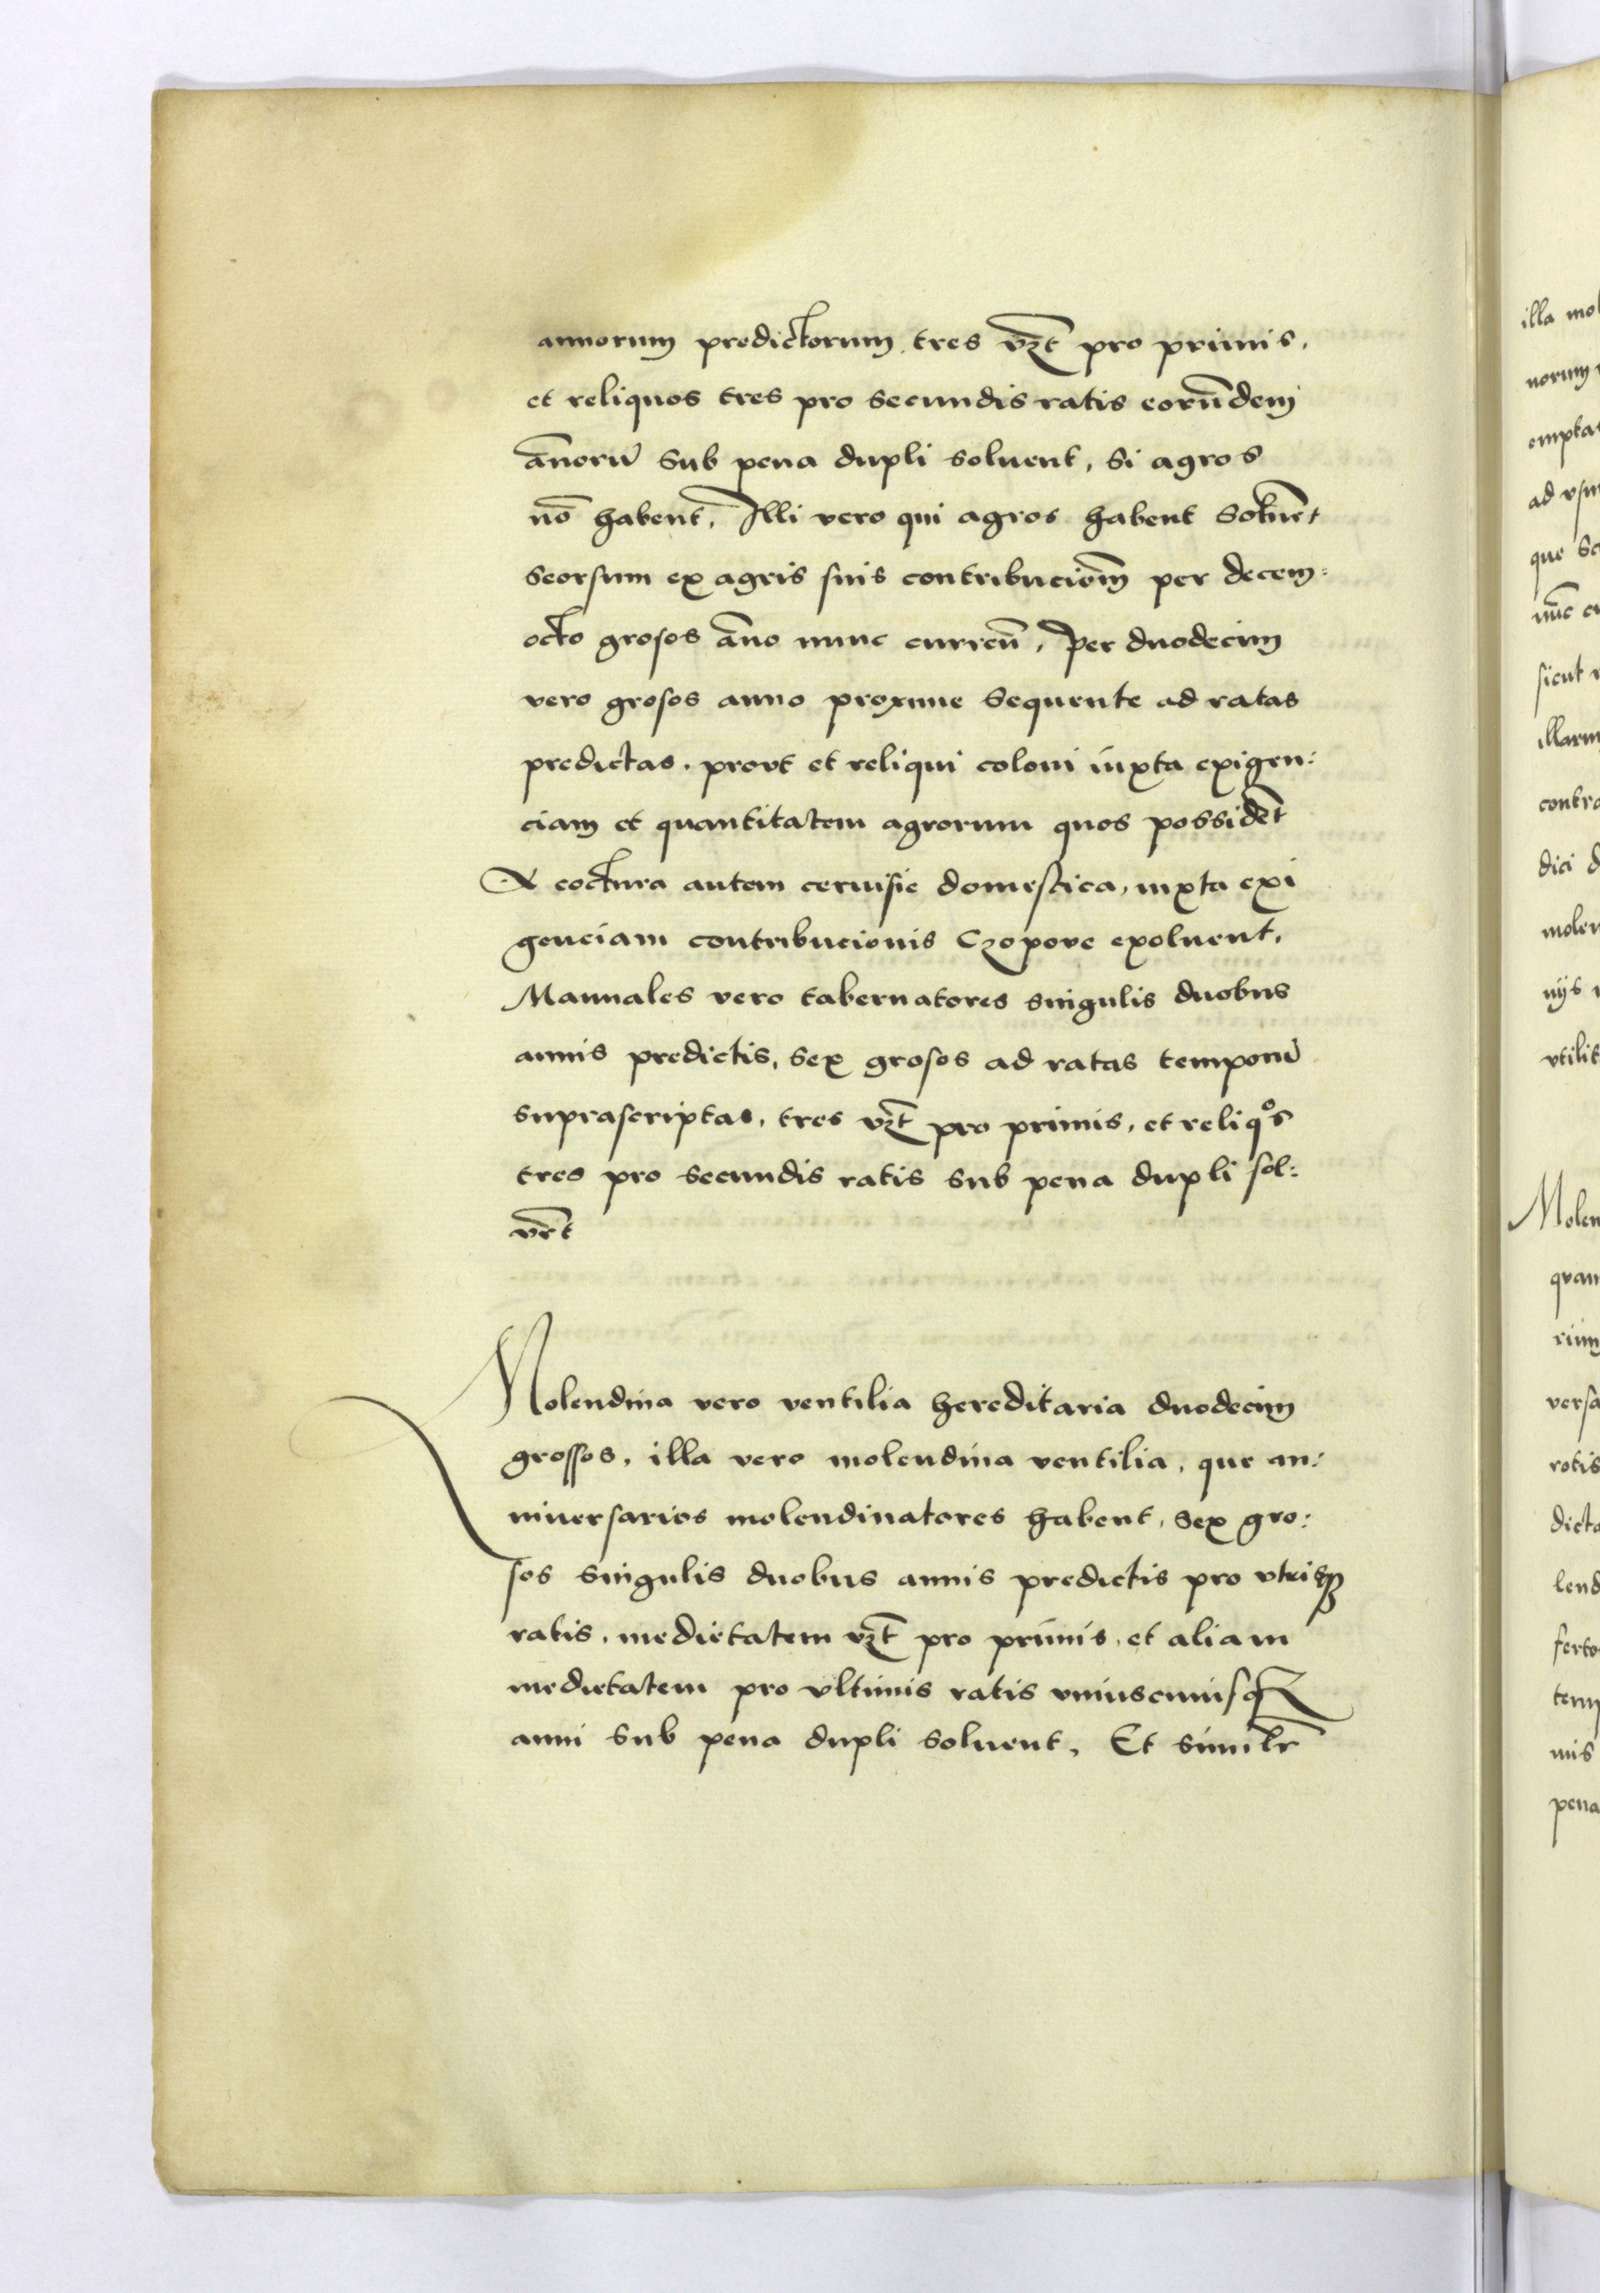 annorum predictorum, tres vꝫt pro primis,
et reliquos tres pro secundis ratis eorūdem
ān̄orū sub pena dupli soluent, si agros
nō habent, Illi vero qui agros habent Soluēt
Seorsum ex agris suis contribucioēm per decem:
octo grosos āno nunc curreñ, per duodecim
vero grosos anno proxime Sequente ad ratas
predictas. provt et reliqui coloni iuxta exigen:
ciam et quantitatem agrorum quos possidēt
A coctura autem ceruisie domestica, iuxta exi
genciam contribucionis Czopove exoluent,
Manuales vero tabernatores singulis duobus
annis predictis, Sex grosos ad ratas temporū
suprascriptas, tres vꝫt pro primis, et reliqºs
tres pro secundis ratis sub pena dupli sol:
vēt
Molendina vero ventilia hereditaria duodecim
grossos, illa vero molendina ventilia, que an:
niuersarios molendinatores habent, Sex gro:
sos singulis duobus annis predictis pro vtrisqꝫ
ratis, medietatem vꝫt pro primis, et aliam
medietatem pro vltimis ratis vniuscuiusqꝫ
anni sub pena dupli soluent, Et similr̄
illa mol
norum
empta
ad vsu
que Se
nūc cu
sicut
illarum
contra
dici d
molen
nijs
vtilit
Molen
quam
rium
versa
rotis
dicta
lend
ferto
temp
mis
pena